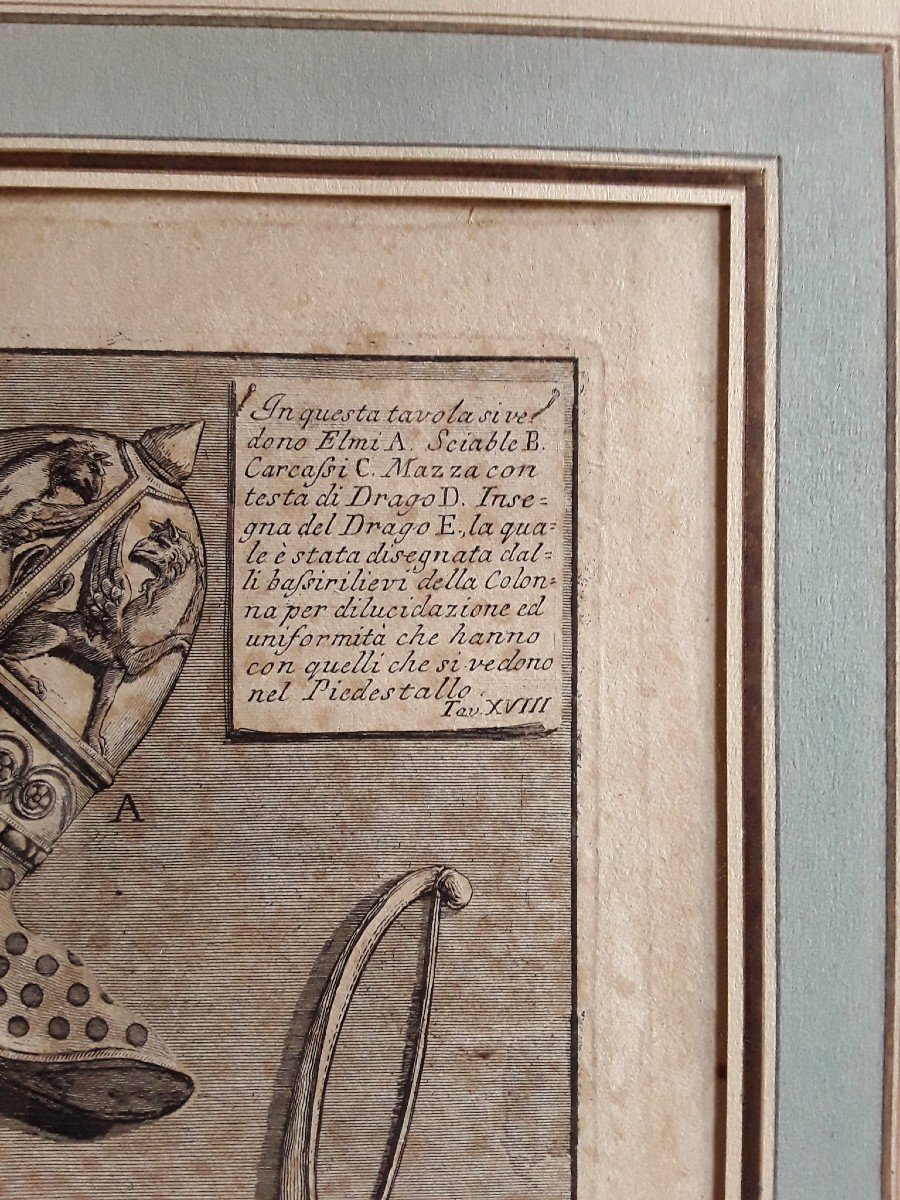 In questa tavola si ve
dono Elmi A. Sciable B.
Carcaſsi C. Mazza con
testa di Drago D. Inse=
gna del Drago E., la qua=
le è stata disegnata dal=
li baſsirilievi della Colon=
na per dilucidazione ed
uniformità che hanno
con quelli che si vedono
nel Piedestallo.
Tav. XVIII
A